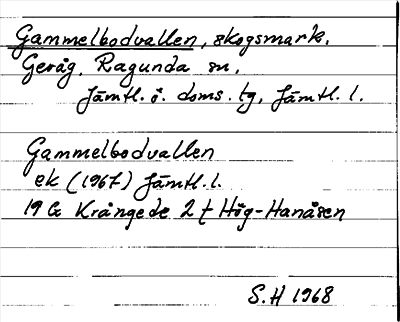 Gammelbodvallen, skogsmark,
Gevåg, Ragunda sn,
Jämtl. ö. doms. tg, Jämtl. l.
Gammelbodvallen
ek (1967) Jämtl. l.
19 G Krångede 2 f Hög-Hanåsen
S.H 1968